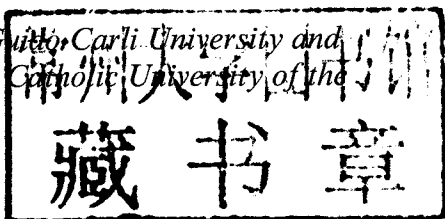 Guido Carli University and
Catholic University of the
藏书章